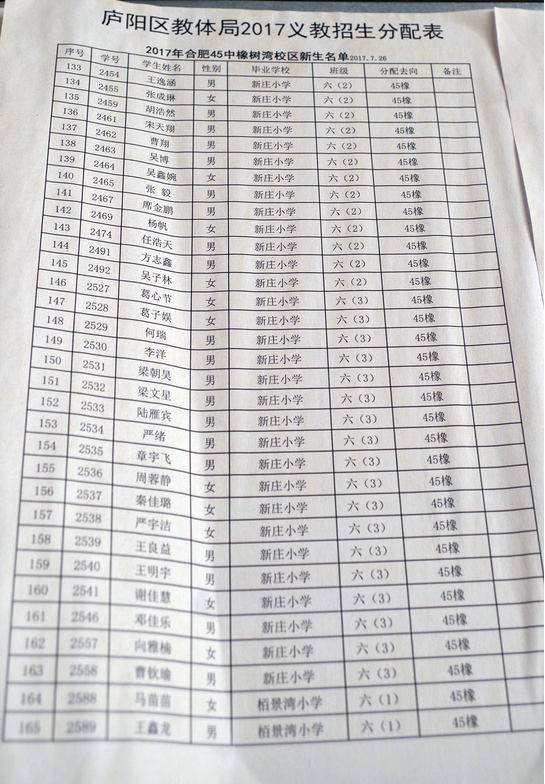 庐阳区教体局2017义教招生分配表
2017年合肥45中橡树湾校区新生名单2017.7.26
序号 学号 学生姓名 性别 毕业学校 班级 分配去向 备注
133 2454 王逸涵 男 新庄小学 六（2） 45橡
134 2455 张成琳 女 新庄小学 六（2） 45橡
135 2459 胡浩然 男 新庄小学 六（2） 45橡
136 2461 宋天翔 男 新庄小学 六（2） 45橡
137 2462 曹翔 男 新庄小学 六（2） 45橡
138 2463 吴博 男 新庄小学 六（2） 45橡
139 2464 吴鑫婉 女 新庄小学 六（2） 45橡
140 2465 张 毅 男 新庄小学 六（2） 45橡
141 2467 席金鹏 男 新庄小学 六（2） 45橡
142 2469 杨帆 女 新庄小学 六（2） 45橡
143 2474 任浩天 男 新庄小学 六（2） 45橡
144 2491 方志鑫 男 新庄小学 六（2） 45橡
145 2492 吴子林 女 新庄小学 六（2） 45橡
146 2527 葛心节 女 新庄小学 六（3） 45橡
147 2528 葛子娱 女 新庄小学 六（3） 45橡
148 2529 何瑞 男 新庄小学 六（3） 45橡
149 2530 李洋 男 新庄小学 六（3） 45橡
150 2531 梁朝昊 男 新庄小学 六（3） 45橡
151 2532 梁文星 男 新庄小学 六（3） 45橡
152 2533 陆雁宾 男 新庄小学 六（3） 45橡
153 2534 严绪 男 新庄小学 六（3） 45橡
154 2535 章宇飞 男 新庄小学 六（3） 45橡
155 2536 周蓉静 女 新庄小学 六（3） 45橡
156 2537 秦佳璐 女 新庄小学 六（3） 45橡
157 2538 严宇洁 女 新庄小学 六（3） 45橡
158 2539 王良益 男 新庄小学 六（3） 45橡
159 2540 王明宇 男 新庄小学 六（3） 45橡
160 2541 谢佳慧 女 新庄小学 六（3） 45橡
161 2546 邓佳乐 男 新庄小学 六（3） 45橡
162 2557 向雅楠 女 新庄小学 六（3） 45橡
163 2558 曹钦瑜 男 新庄小学 六（3） 45橡
164 2588 马苗苗 女 栢景湾小学 六（1） 45橡
165 2589 王鑫龙 男 栢景湾小学 六（1） 45橡